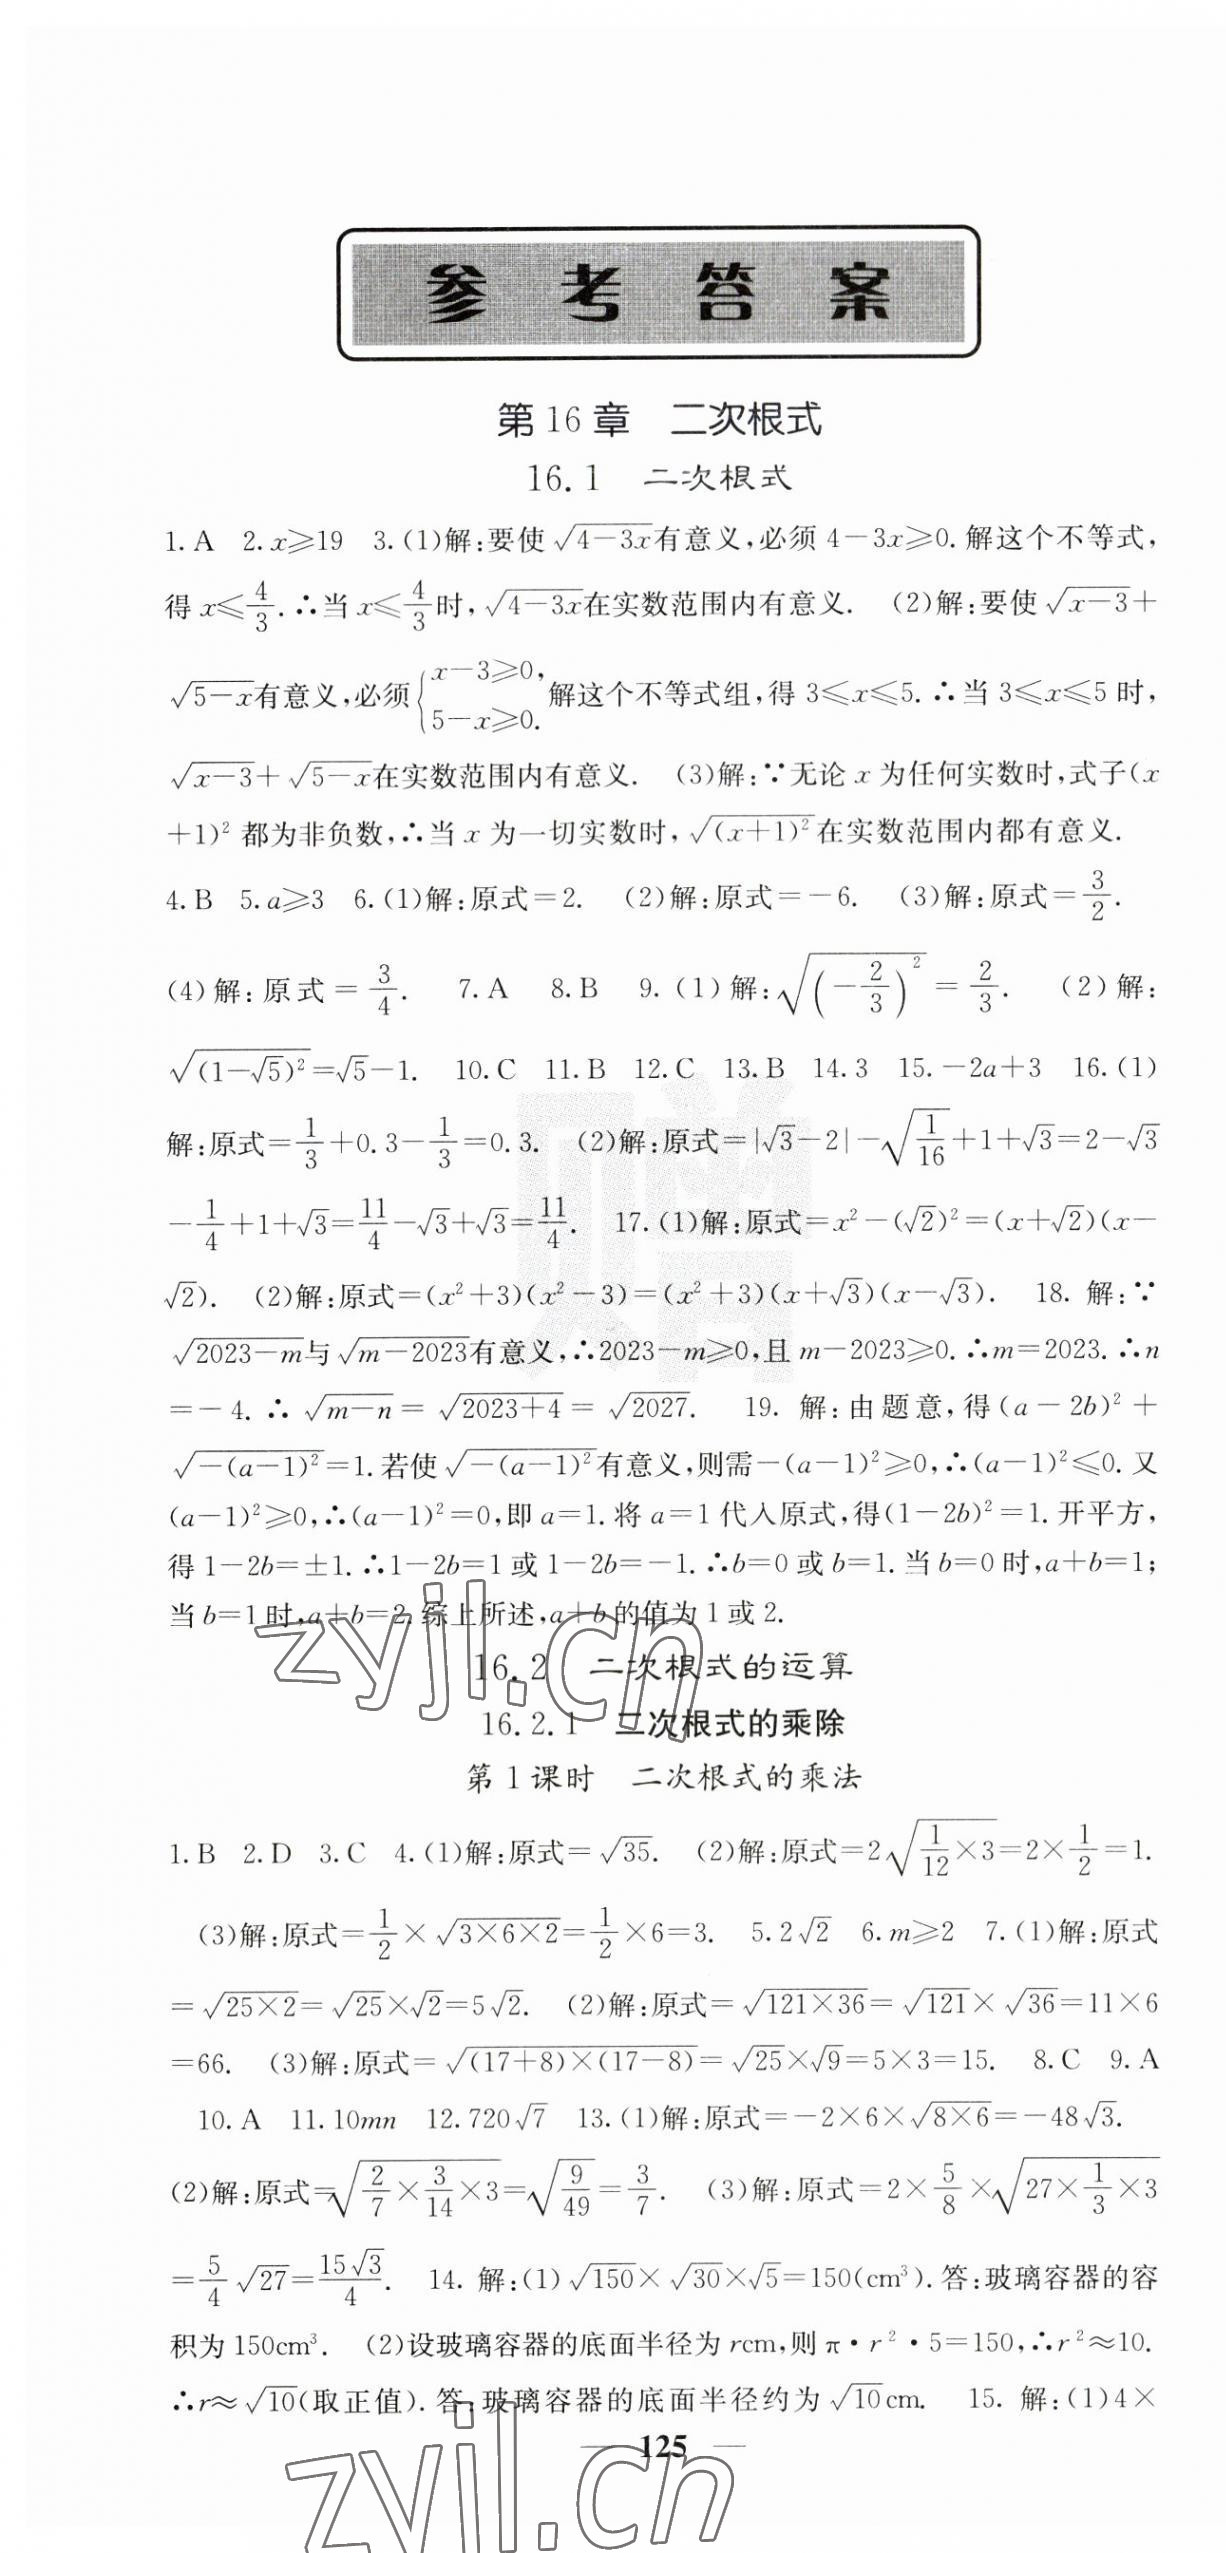 参考答案
第16章 二次根式
16.1 二次根式
1.A 2.x≥19 3.(1)解:要使√(4-3x)有意义,必须4-3x≥0.解这个不等式,
得x≤4/3.∴当x≤4/3时,√(4-3x)在实数范围内有意义. (2)解:要使√(x-3)+
√(5-x)有意义,必须{x-3≥0,5-x≥0.解这个不等式组,得3≤x≤5.∴当3≤x≤5时,
√(x-3)+√(5-x)在实数范围内有意义. (3)解:∵无论x为任何实数时,式子(x
+1)²都为非负数,∴当x为一切实数时,√((x+1)²)在实数范围内都有意义.
4.B 5.a≥3 6.(1)解:原式=2. (2)解:原式=-6. (3)解:原式=3/2.
(4)解:原式=3/4. 7.A 8.B 9.(1)解:√((-2/3)²)=2/3. (2)解:
√((1-√5)²)=√5-1. 10.C 11.B 12.C 13.B 14.3 15.-2a+3 16.(1)
解:原式=1/3+0.3-1/3=0.3. (2)解:原式=|√3-2|-√(1/16)+1+√3=2-√3
-1/4+1+√3=11/4-√3+√3=11/4. 17.(1)解:原式=x²-(√2)²=(x+√2)(x-
√2). (2)解:原式=(x²+3)(x²-3)=(x²+3)(x+√3)(x-√3). 18.解:∵
√(2023-m)与√(m-2023)有意义,∴2023-m≥0,且m-2023≥0.∴m=2023.∴n
=-4.∴√(m-n)=√(2023+4)=√2027. 19.解:由题意,得(a-2b)²+
√(-(a-1)²)=1.若使√(-(a-1)²)有意义,则需-(a-1)²≥0,∴(a-1)²≤0.又
(a-1)²≥0,∴(a-1)²=0,即a=1.将a=1代入原式,得(1-2b)²=1.开平方,
得1-2b=±1.∴1-2b=1或1-2b=-1.∴b=0或b=1.当b=0时,a+b=1;
当b=1时,a+b=2.综上所述,a+b的值为1或2.
zyjl.cn
16.2 二次根式的运算
16.2.1 二次根式的乘除
第1课时 二次根式的乘法
1.B 2.D 3.C 4.(1)解:原式=√35. (2)解:原式=2√(1/12×3)=2×1/2=1.
(3)解:原式=1/2×√(3×6×2)=1/2×6=3. 5.2√2 6.m≥2 7.(1)解:原式
=√(25×2)=√25×√2=5√2. (2)解:原式=√(121×36)=√121×√36=11×6
=66. (3)解:原式=√((17+8)×(17-8))=√25×√9=5×3=15. 8.C 9.A
10.A 11.10mn 12.720√7 13.(1)解:原式=-2×6×√(8×6)=-48√3.
(2)解:原式=√(2/7×3/14×3)=√(9/49)=3/7. (3)解:原式=2×5/8×√(27×1/3×3)
=5/4√27=15√3/4. 14.解:(1)√150×√30×√5=150(cm³).答:玻璃容器的容
积为150cm³. (2)设玻璃容器的底面半径为rcm,则π·r²·5=150,∴r²≈10.
∴r≈√10(取正值).答:玻璃容器的底面半径约为√10cm. 15.解:(1)4×
125
zyjl.cn